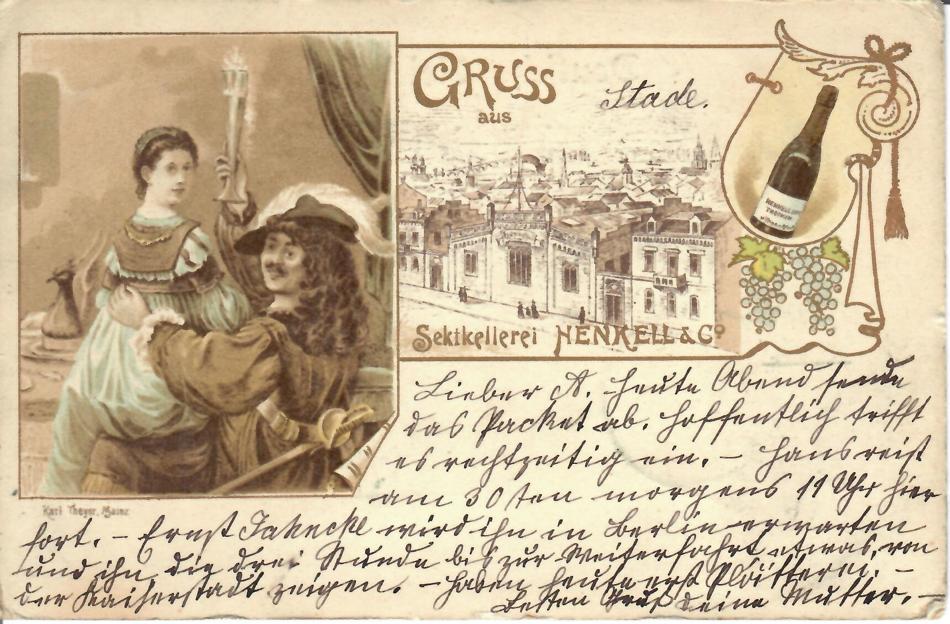 GRUSS
aus
Stade.
HENKELL
TROCKEN
Sektkellerei HENKELL & Cº
Karl Theyer, Mainz
Lieber A. heute Abend sende
das Packet ab. hoffentlich trifft
es rechtzeitig ein. – Hans reist
am 30ten morgens 11 Uhr hier
fort. – Ernst Jahncke wird ihn in Berlin erwarten
und ihn die drei Stunde bis zur Weiterfahrt etwas von
der Kaiserstadt zeigen. – Haben heute erst Plätterei. –
Besten Gruß deine Mutter. –